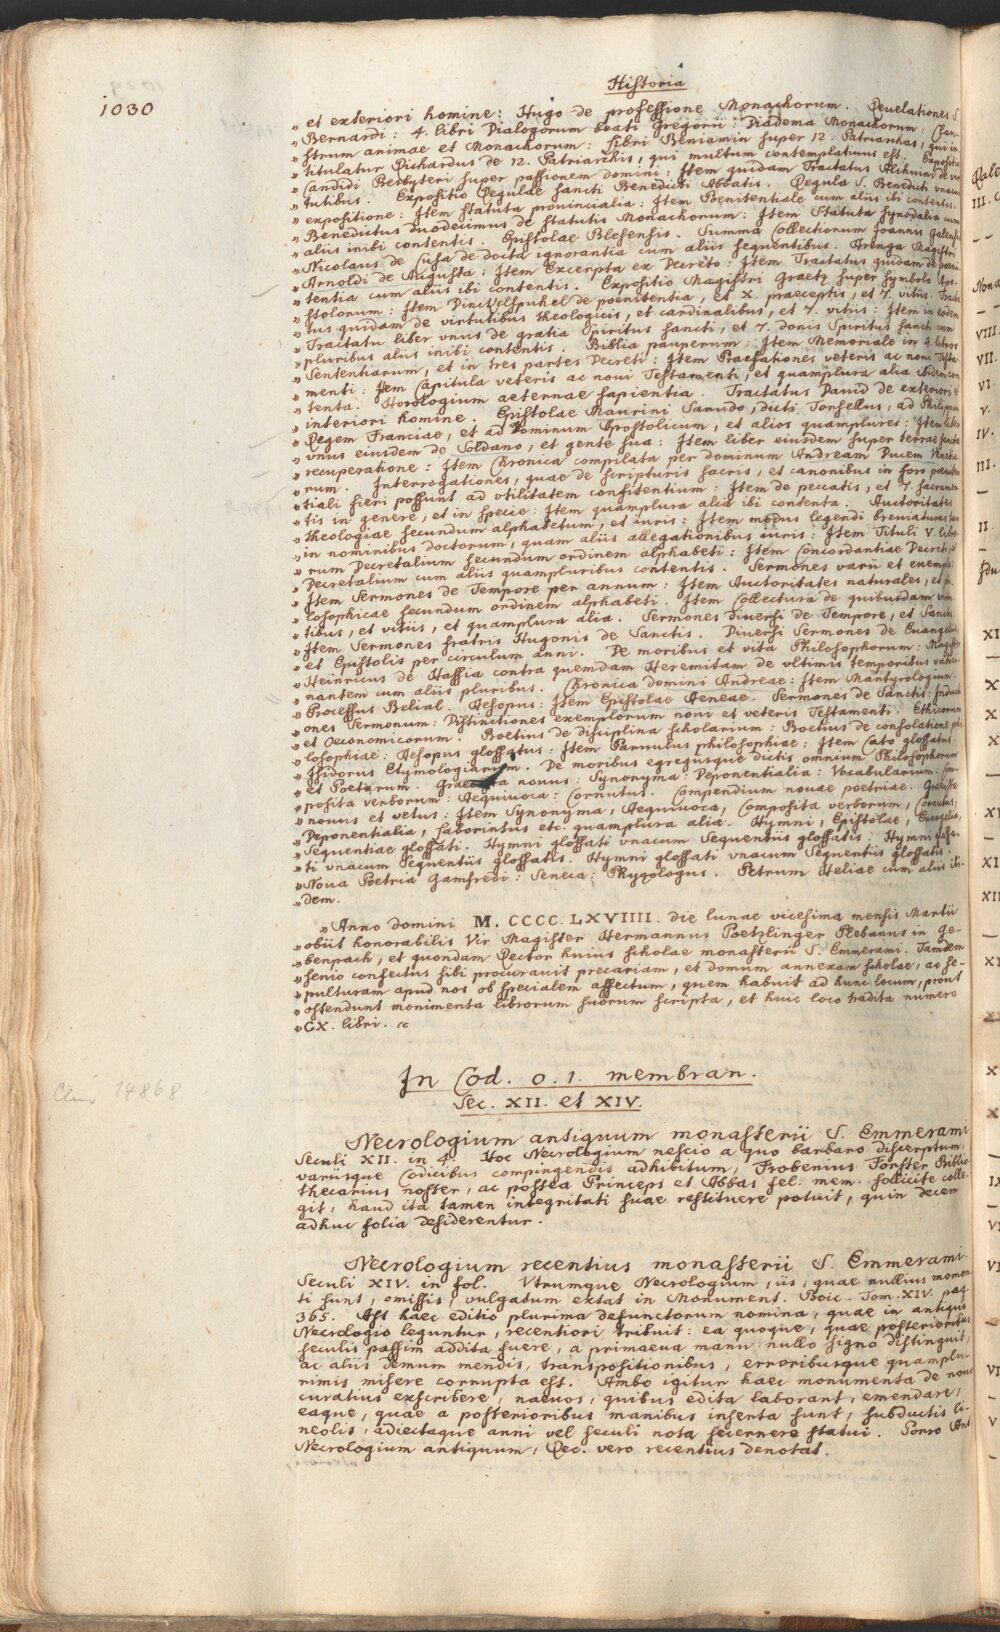 Historia
1030
„ et exteriori homine: Hugo de professione Monachorum. Reuelationes S.
„ Bernardi: 4. libri Dialogorum beati Gregorii: Diadema Monachorum: Clau-
„ strum animae et Monachorum: libri Beniamin super 12. Patriarchas, qui in
„ titulatur Richardus de 12. Patriarchis, qui multum contemplatiuus est. Expositio
„ Candidi Presbyteri super passionem domini: Item quidam Tractatus Alchuini de vir
„ tutibus. Expositio Regulae sancti Benedicti Abbatis. Regula S. Benedicti vnacum
„ expositione: Item statuta prouincialia: Item Penitentiale cum aliis ibi contentis.
„ Benedictus duodecimus de statutis Monachorum: Item Statuta synodalia cum
„ aliis inibi contentis. Epistolae Blesensis. Summa Collectionum Joannis Galensis
„ Nicolaus de Cusa de docta ignorantia cum aliis sequentibus. Arenga Magistri
„ Arnoldi de Augusta: Item Excerpta ex Decreto: Item Tractatus quidam de poeni
„ tentia cum aliis ibi contentis. Expositio Magistri Graetz super Symbolo Apo-
„ stolorum: Item Dinckelspuhel de poenitentia, et X. praeceptis, et 7. vitiis. Tracta
„ tus quidam de virtutibus theologicis, et cardinalibus, et 7. vitiis: Item in eodem
„ Tractatu liber vnus de gratia Spiritus sancti, et 7. donis Spiritus sancti cum
„ pluribus aliis inibi contentis. Biblia pauperum: Item Memoriale in 4. libros
„ Sententiarum, et in tres partes Decreti: Item Praefationes veteris ac noui Testa
„ menti: Item Capitula veteris ac noui Testamenti, et quamplura alia ibidem con
„ tenta. Horologium aeternae sapientia. Tractatus Dauid de exteriori et
„ interiori homine. Epistolae Maurini Sanudo, dicti Torsellus, ad Philippum
„ Regem Franciae, et ad Dominum Apostolicum, et alios quamplures: Item liber
„ vnus eiusdem de Soldano, et gente sua: Item liber eiusdem super terrae sanctae
„ recuperatione: Item Chronica compilata per dominum Andream Ducem Veneto
„ rum. Interrogationes, quae de scripturis sacris, et canonibus in foro poeniten
„ tiali fieri possunt ad vtilitatem confitentium: Item de peccatis, et 7. sacramen
„ tis in genere, et in specie: Item quamplura alia ibi contenta. Auctoritates
„ theologiae secundum alphabetum, et iuris: Item modus legendi breuiaturas tam
„ in nominibus doctorum, quam aliis allegationibus iuris: Item Tituli V. libro-
„ rum Decretalium secundum ordinem alphabeti: Item Concordantiae Decreti, et
„ Decretalium cum aliis quampluribus contentis. Sermones varii et exempla:
„ Item Sermones de Tempore per annum: Item Auctoritates naturales, et phi
„ losophicae secundum ordinem alphabeti. Item Collectura de quibusdam vir-
„ tibus, et vitiis, et quamplura alia. Sermones diuersi de Tempore, et Sanctis
„ Item Sermones fratris Hugonis de Sanctis. Diuersi Sermones de Euangeliis,
„ et Epistolis per circulum anni. De moribus et vita Philosophorum: Magister
„ Heinricus de Hassia contra quemdam Heremitam de vltimis temporibus vatici-
„ nantem cum aliis pluribus. Chronica domini Andreae: Item Martyrologium.
„ Processus Belial. Aesopus: Item Epistolae Aeneae. Sermones de Sanctis: Inducti
„ ones Sermonum: Distinctiones exemplorum noui et veteris Testamenti. Ethicorum
„ et Oeconomicorum. Boetius de disciplina scholarium: Boetius de consolatione phi
„ losophiae: Aesopus glossatus: Item Paruulus philosophiae: Item Cato glossatus.
„ Isidorus Etymologiarum. De moribus egregiisque dictis omnium Philosophorum
„ et Poetarum. Graecista nouus: Synonyma: Deponentialia: Vocabularium: Com-
„ posita verborum: Aequiuoca: Cornutus. Compendium nouae poetriae. Graecista
„ nouus et vetus: Item Synonyma, Aequiuoca, Composita verborum, Cornutus,
„ Deponentialia, Laborintus etc. quamplura alia. Hymni, Epistolae, Euangelia,
„ Sequentiae glossati. Hymni glossati vnacum Sequentiis glossatis. Hymni glossa-
„ ti vnacum Sequentiis glossatis. Hymni glossati vnacum Sequentiis glossatis.
„ Noua Poetria Gamfredi: Seneca: Physologus. Petrum Heliae cum aliis ibi-
„ dem.
„ Anno domini M. CCCC. LXVIIII. die lunae vicesima mensis Martii
„ obiit honorabilis Vir Magister Hermannus Poetzlinger Plebanus in Ge-
„ benpach, et quondam Rector huius scholae monasterii S. Emmerami. Tandem
„ senio confectus sibi procurauit precariam, et domum annexam scholae, ac se-
„ pulturam apud nos ob specialem affectum, quem habuit ad hunc locum, prout
„ ostendunt monimenta librorum suorum scripta, et huic loco tradita numero
„ CX. libri. „
In Cod. o. 1. membran.
Sec. XII. et XIV.
Clm 14868
Necrologium antiquum monasterii S. Emmerami
Seculi XII. in 4. Hoc Necrologium nescio a quo barbaro discerptum,
variisque Codicibus compingendis adhibitum, Frobenius Forster Biblio
thecarius noster, ac postea Princeps et Abbas fel. mem. sollicite colle-
git, haud ita tamen integritati suae restituere potuit, quin decem
adhuc folia desiderentur.
Necrologium recentius monasterii S. Emmerami.
Seculi XIV. in fol. Vtrumque Necrologium, iis, quae nullius momen
ti sunt, omissis, vulgatum extat in Monument. Boic. Tom. XIV. pag.
365. Ast haec editio plurima defunctorum nomina, quae in antiquo
Necrologio leguntur, recentiori tribuit: ea quoque, quae posterioribus
seculis passim addita fuere, a primaeua manu nullo signo distinguit,
ac aliis demum mendis, transpositionibus, erroribusque quamplu-
rimis misere corrupta est. Ambo igitur haec monumenta de nouo
curatius exscribere, naeuos, quibus edita laborant, emendare,
eaque, quae a posterioribus manibus inserta sunt, subductis li-
neolis, adiectaque anni vel seculi nota secernere statui. Porro Ant.
Necrologium antiquum, Rec. vero recentius denotat.